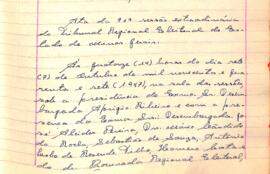 Ata da 90ª sessão extraordinária
do Tribunal Regional Eleitoral do Es-
tado de Minas Gerais.
Às quatorze (14) horas do dia sete
(7) de Outubro de mil novecentos e qua-
renta e sete (1947), na sala das sessões,
sob a presidência do Exmo. Sr. Desem-
bargador Aprigio Ribeiro e com a pre-
sença dos Exmos. Srs. Desembargadores
Alcides Pereira, Drs.
da Rocha, Sebastião de Souza, Antonio
de Rezende Filho,
do da Procurador Regional Eleitoral,